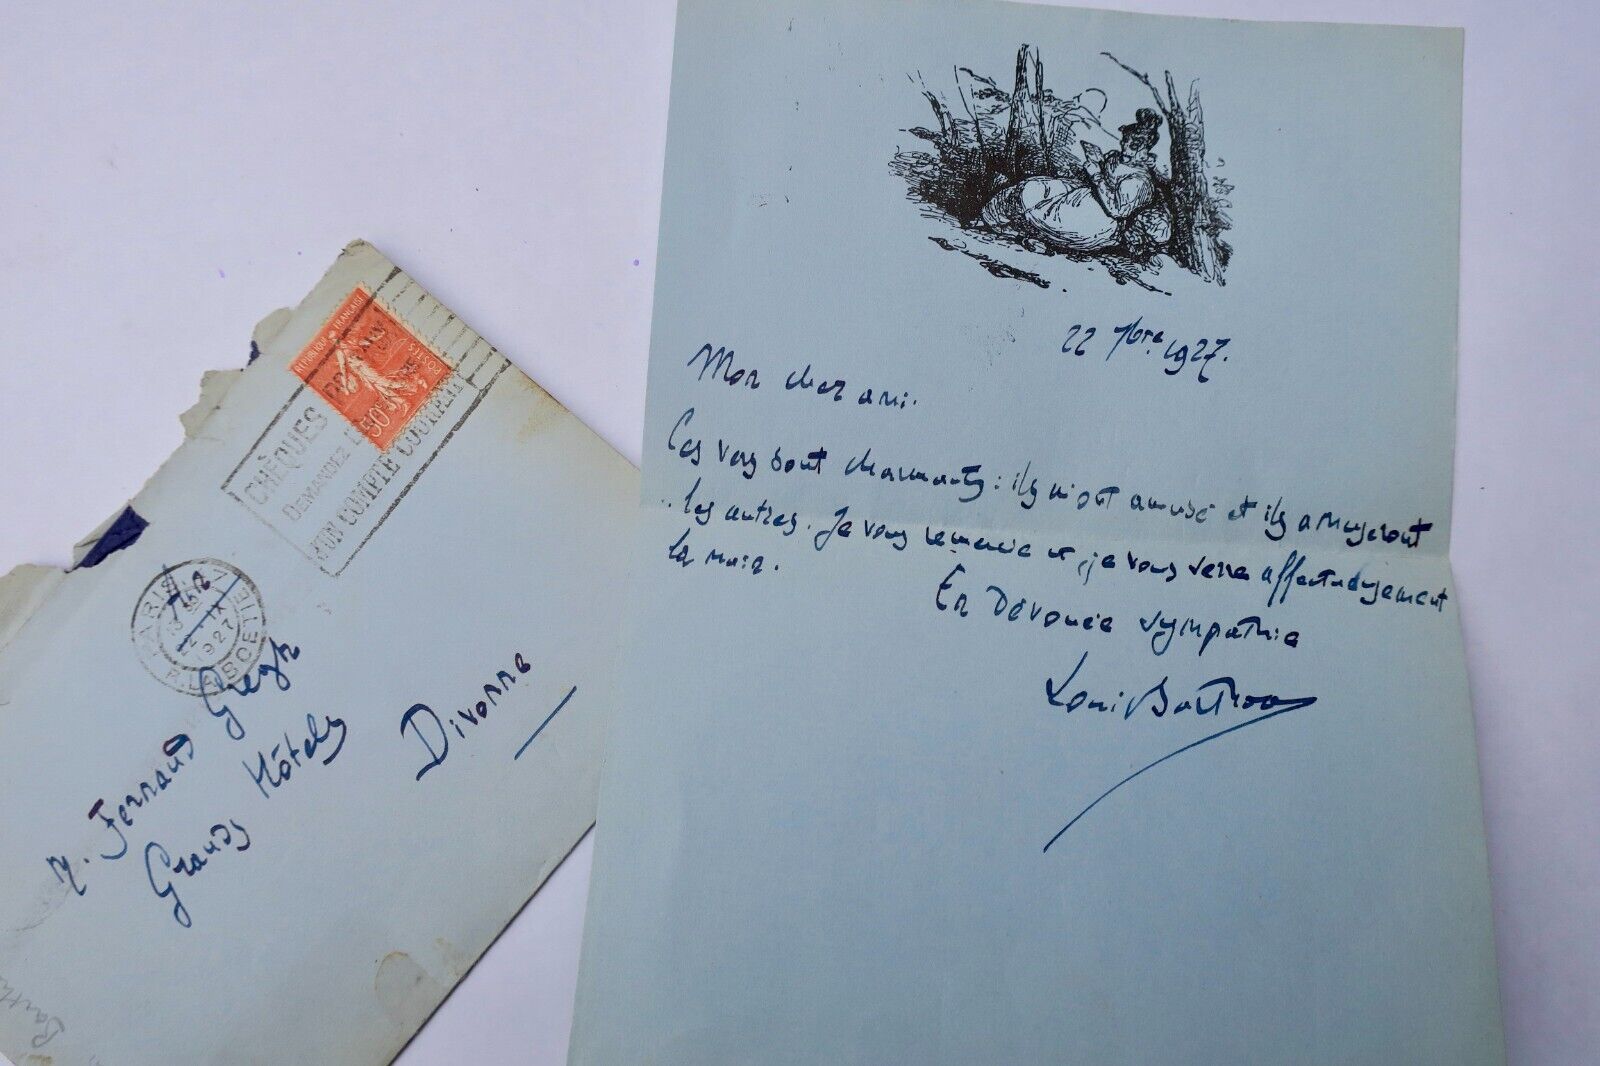 RÉPUBLIQUE FRANÇAISE
POSTES
50c
CHÈQUES POSTAUX
DEMANDEZ L'OUVERTURE
D'UN COMPTE COURANT
PARIS
22 IX
1927
R. LA BOETIE
Ain
M. Fernand Gregh
Grands Hôtels
Divonne
22 7bre 1927.
Mon cher ami.
Ces vers sont charmants : ils m'ont amusé et ils amuseront
les autres. Je vous remercie et je vous serre affectueusement
la main.
En dévouée sympathie
Louis Barthou